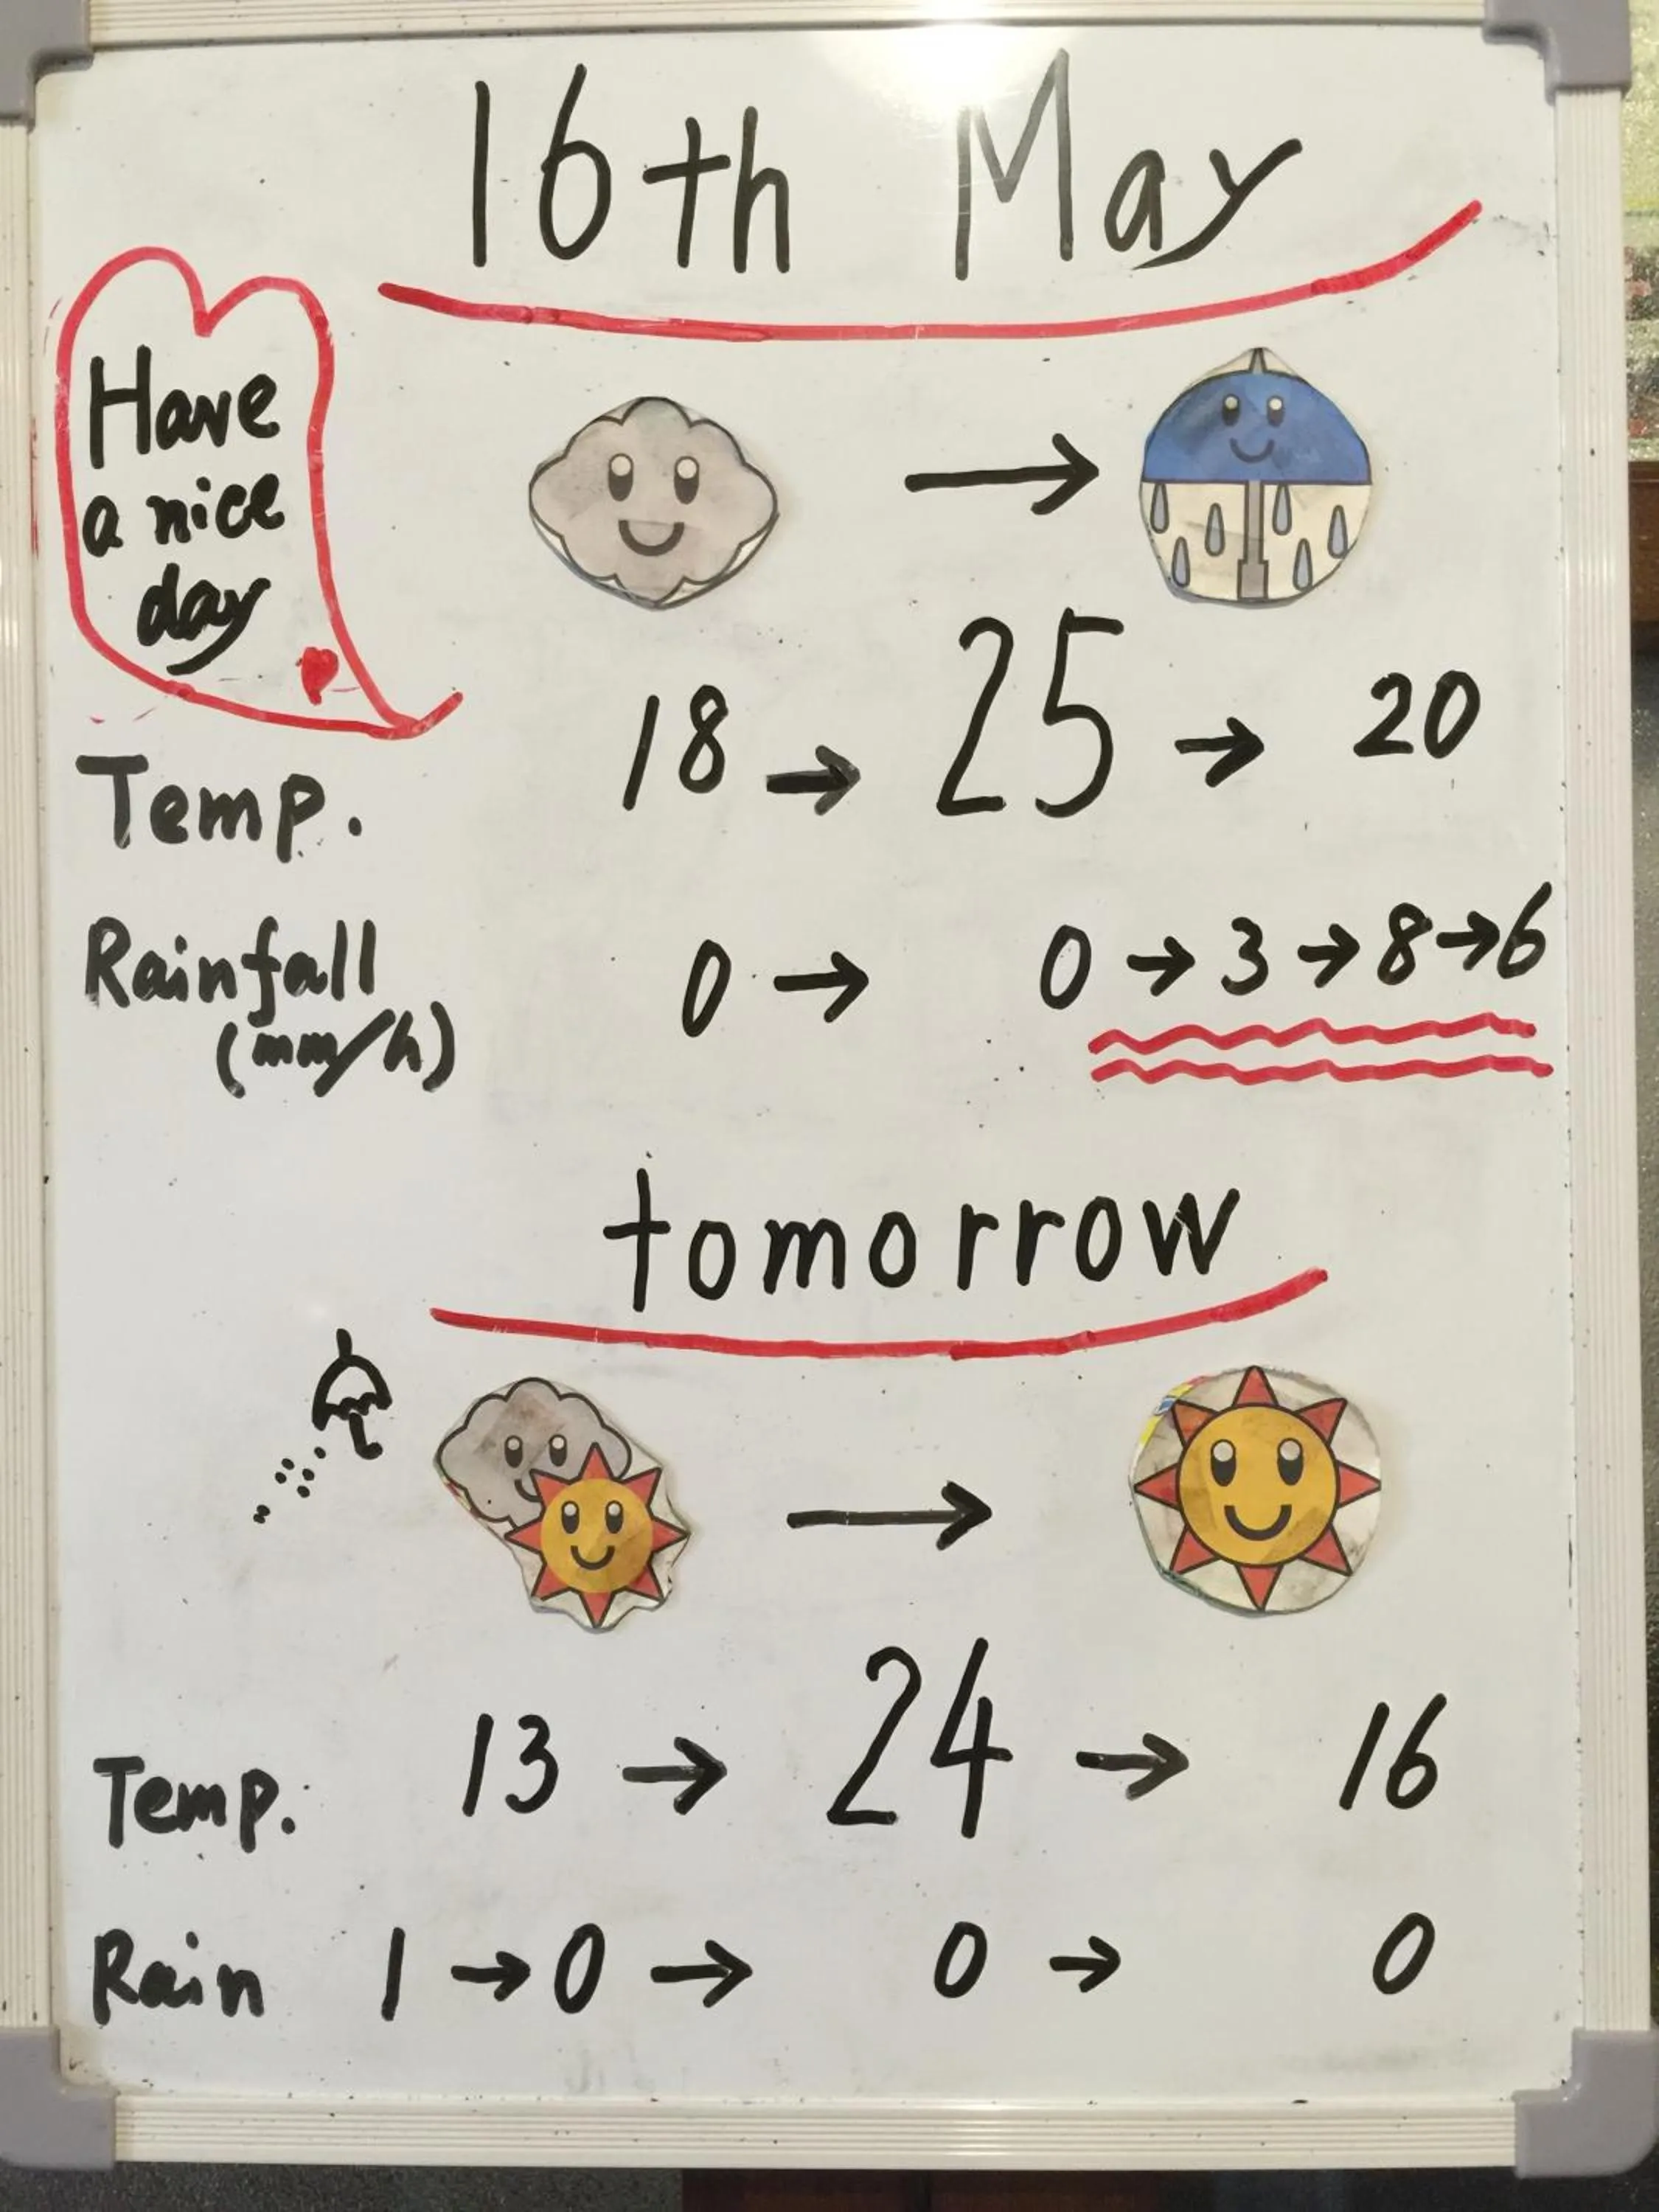 16th May
Have
a nice
day
18 → 25 → 20
Temp.
Rainfall 0 → 0 → 3 → 8 → 6
(mm/h)
tomorrow
Temp. 13 → 24 → 16
Rain 1 → 0 → 0 → 0